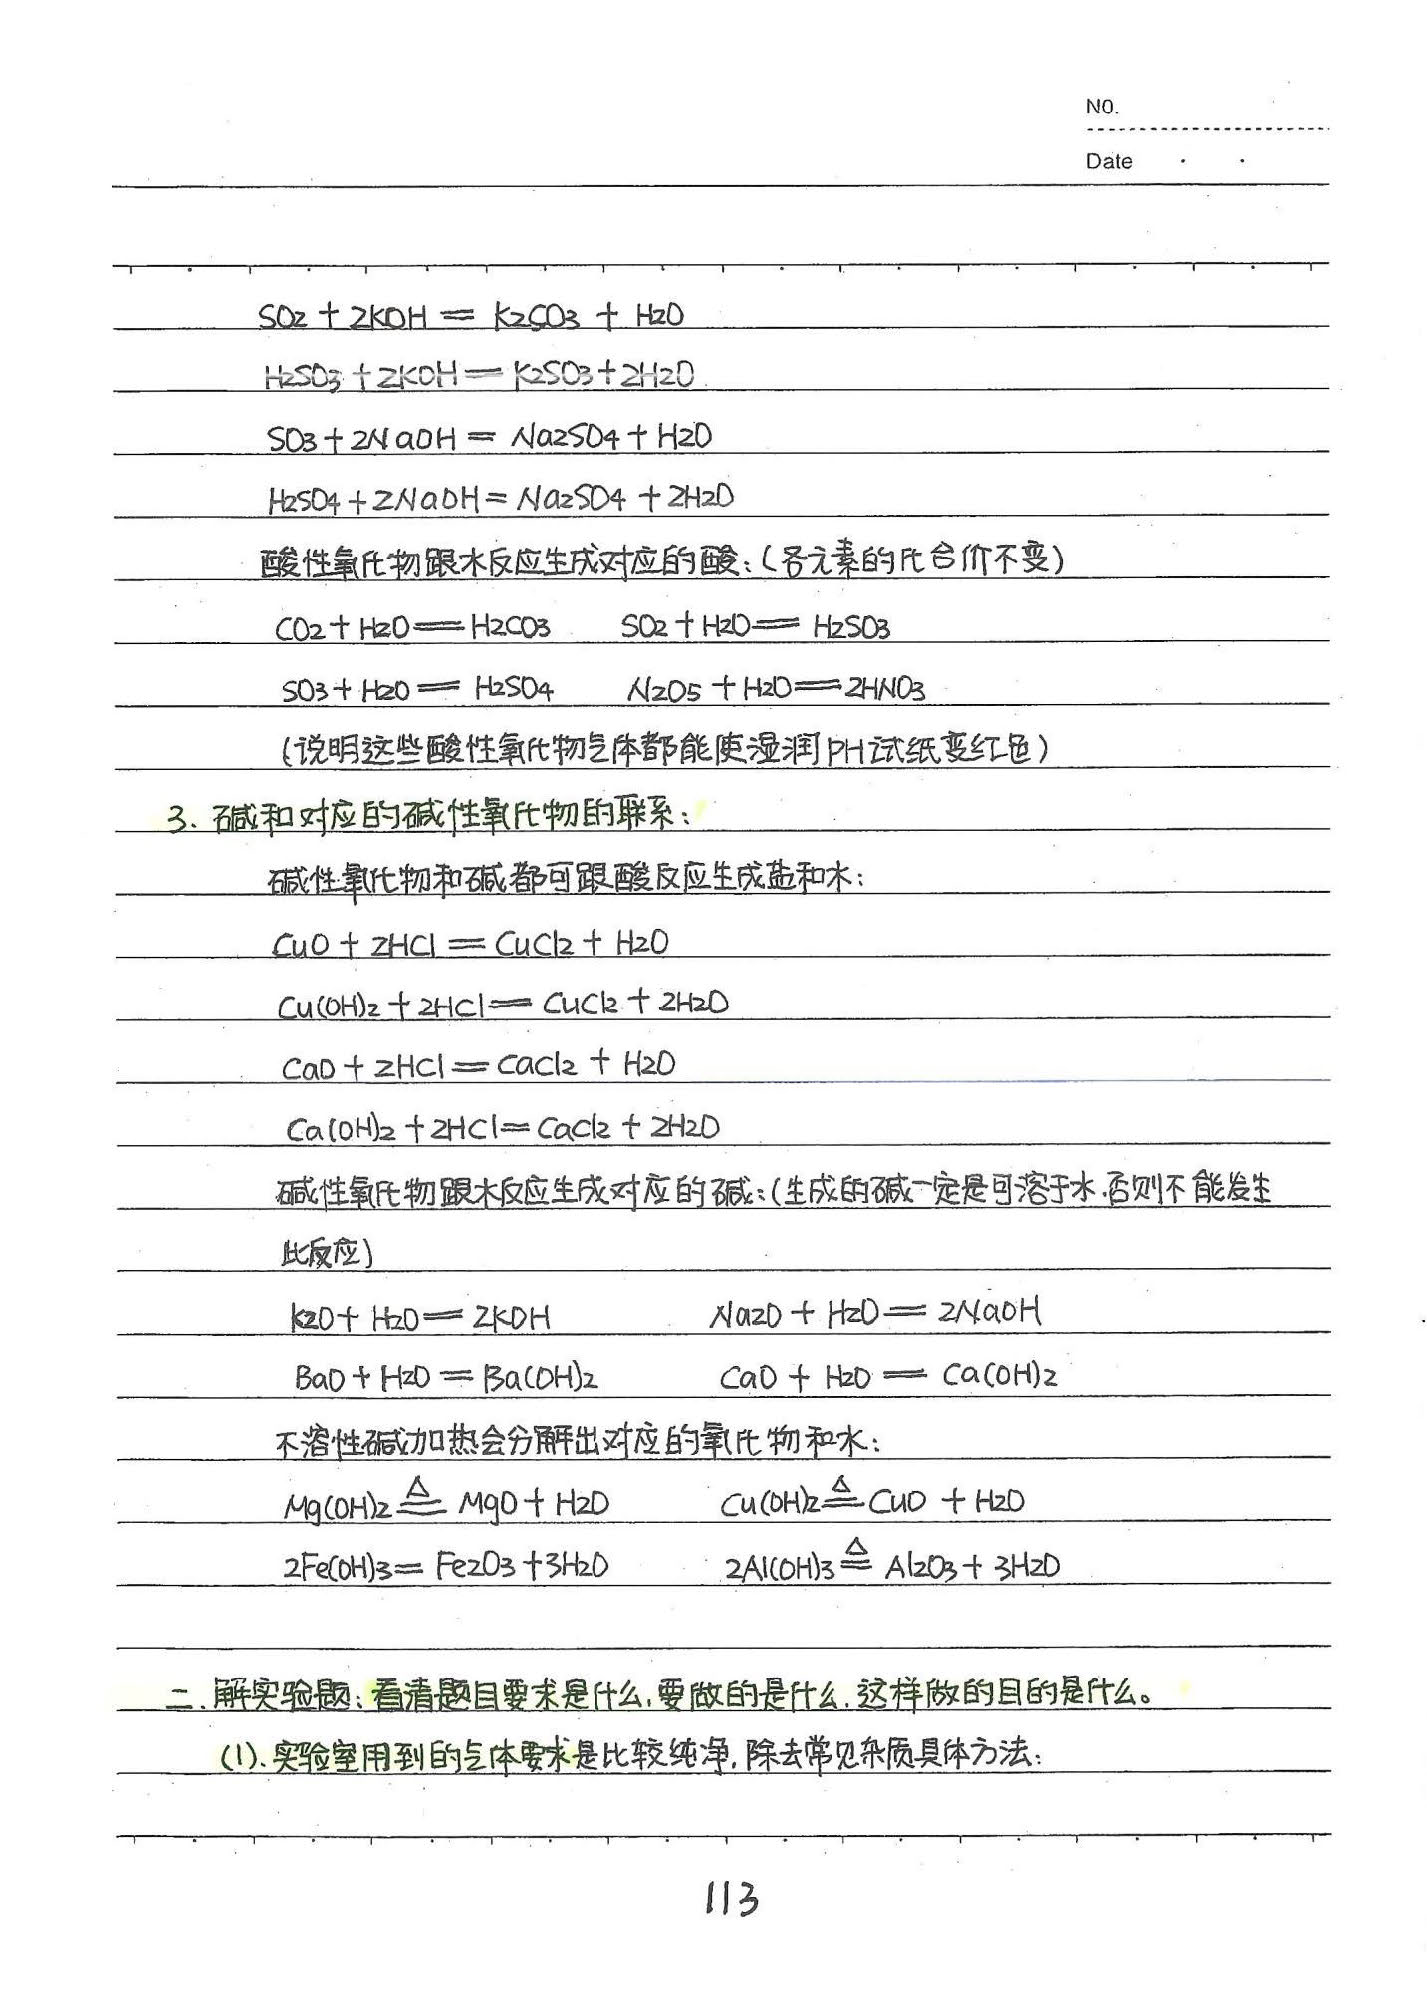 NO.
Date
SO2 + 2KOH = K2SO3 + H2O
H2SO3 + 2KOH = K2SO3 + 2H2O
SO3 + 2NaOH = Na2SO4 + H2O
H2SO4 + 2NaOH = Na2SO4 + 2H2O
酸性氧化物跟水反应生成对应的酸:(各元素的化合价不变)
CO2 + H2O = H2CO3 SO2 + H2O = H2SO3
SO3 + H2O = H2SO4 N2O5 + H2O = 2HNO3
(说明这些酸性氧化物气体都能使湿润PH试纸变红色)
3. 碱和对应的碱性氧化物的联系:
碱性氧化物和碱都可跟酸反应生成盐和水:
CuO + 2HCl = CuCl2 + H2O
Cu(OH)2 + 2HCl = CuCl2 + 2H2O
CaO + 2HCl = CaCl2 + H2O
Ca(OH)2 + 2HCl = CaCl2 + 2H2O
碱性氧化物跟水反应生成对应的碱:(生成的碱一定是可溶于水,否则不能发生
此反应)
K2O + H2O = 2KOH Na2O + H2O = 2NaOH
BaO + H2O = Ba(OH)2 CaO + H2O = Ca(OH)2
不溶性碱加热会分解出对应的氧化物和水:
Mg(OH)2 ≜ MgO + H2O Cu(OH)2 ≜ CuO + H2O
2Fe(OH)3 = Fe2O3 + 3H2O 2Al(OH)3 ≜ Al2O3 + 3H2O
二.解实验题:看清题目要求是什么,要做的是什么,这样做的目的是什么。
(1).实验室用到的气体要求是比较纯净,除去常见杂质具体方法:
113